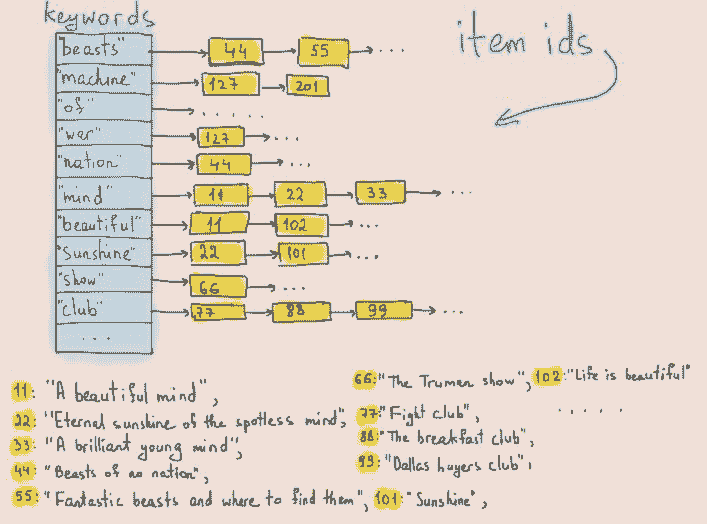 keywords
item ids
"beasts" 44 55 ...
"machine" 127 201
"of" .....
"war" 127 ...
"nation" 44 ...
"mind" 11 22 33 ...
"beautiful" 11 102 ...
"Sunshine" 22 101 ...
"show" 66 ...
"club" 77 88 99 ...
...
11: "A beautiful mind",
22: "Eternal sunshine of the spotless mind",
33: "A brilliant young mind",
44: "Beasts of no nation",
55: "Fantastic beasts and where to find them", 101: "Sunshine",
66: "The Truman show", 102: "Life is beautiful"
77: "Fight club", .....
88: "The breakfast club",
99: "Dallas buyers club",